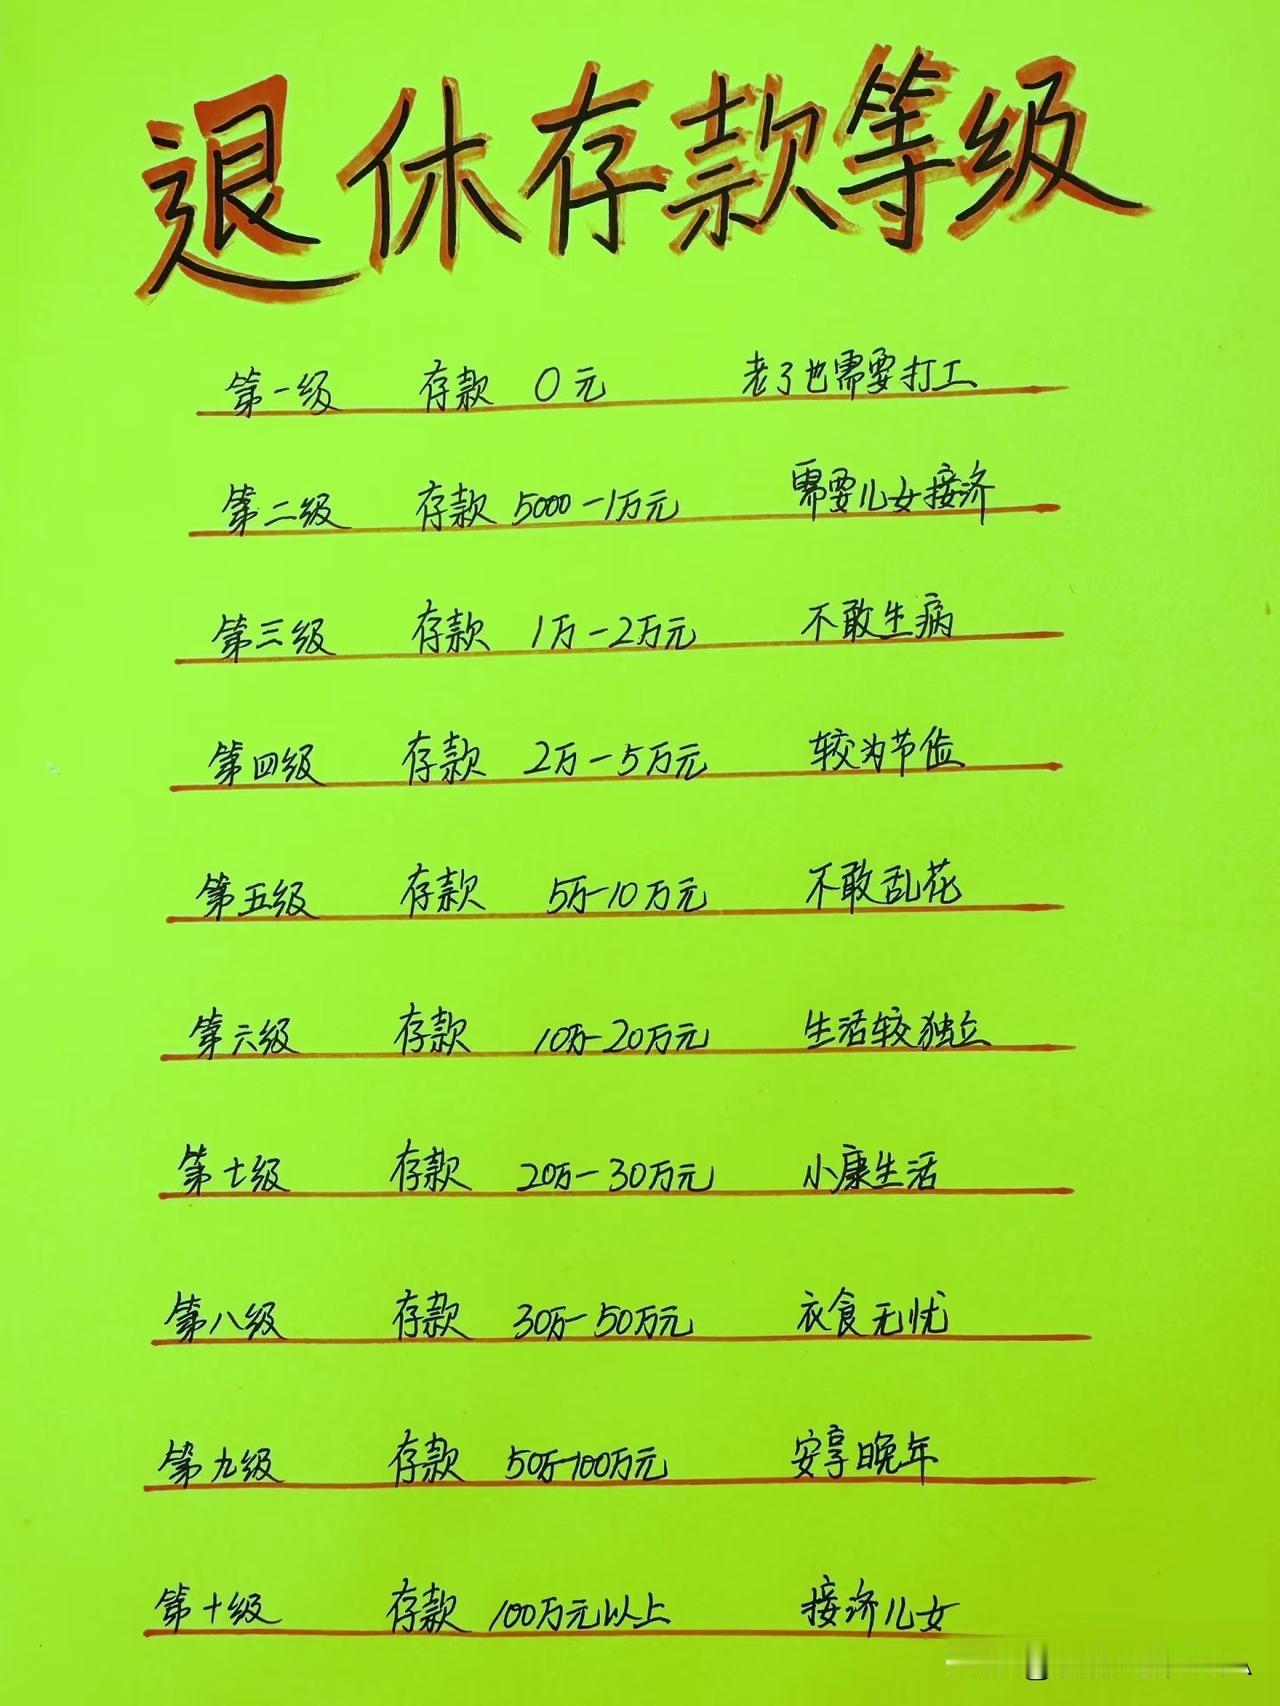 退休存款等级
第一级 存款 0元 老了也需要打工
第二级 存款 5000-1万元 需要儿女接济
第三级 存款 1万-2万元 不敢生病
第四级 存款 2万-5万元 较为节俭
第五级 存款 5万-10万元 不敢乱花
第六级 存款 10万-20万元 生活较独立
第七级 存款 20万-30万元 小康生活
第八级 存款 30万-50万元 衣食无忧
第九级 存款 50万-100万元 安享晚年
第十级 存款 100万元以上 接济儿女